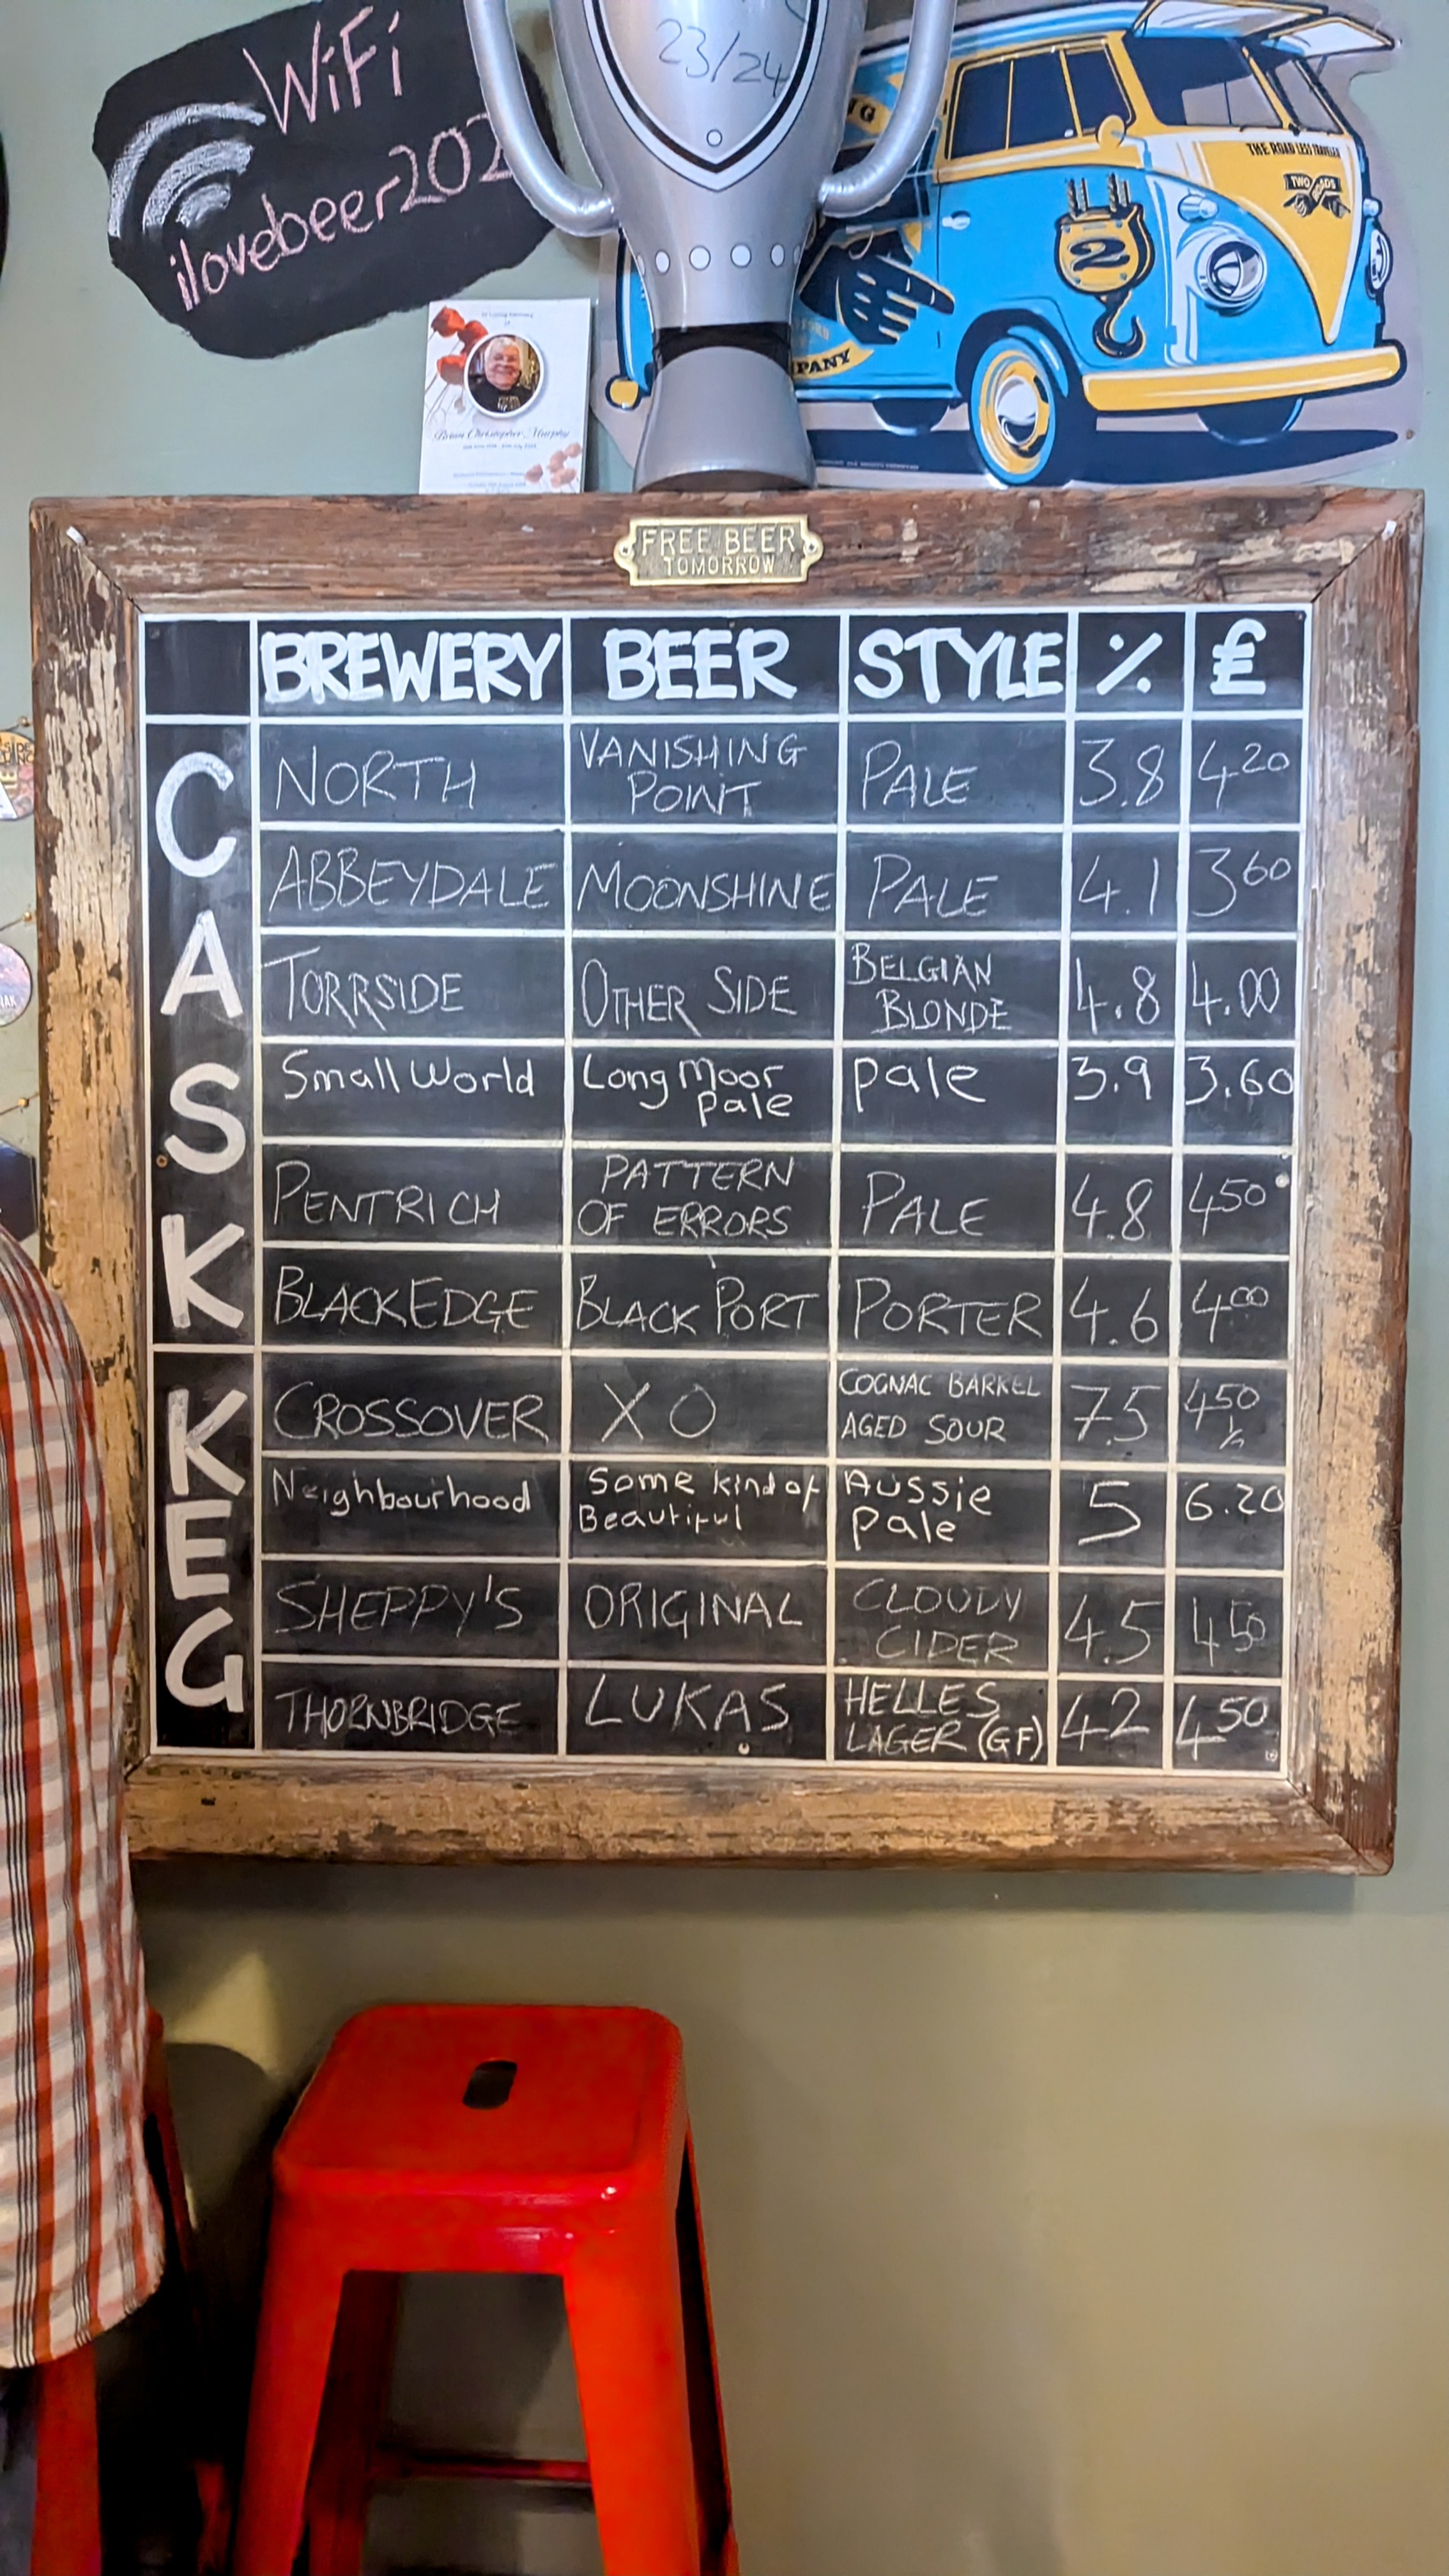 WiFi
ilovebeer202
23/24
THE ROAD LESS TRAVELED
TWO ROADS
2
PANY
In Loving Memory
of
Brian Christopher Murphy
FREE BEER
TOMORROW
BREWERY BEER STYLE % £
CASK
NORTH VANISHING POINT PALE 3.8 4 20
ABBEYDALE MOONSHINE PALE 4.1 3 60
TORRSIDE OTHER SIDE BELGIAN BLONDE 4.8 4.00
Small World Long Moor Pale Pale 3.9 3.60
PENTRICH PATTERN OF ERRORS PALE 4.8 4 50
BLACKEDGE BLACK PORT PORTER 4.6 4 00
KEG
CROSSOVER XO COGNAC BARREL AGED SOUR 7.5 4 50 ½
Neighbourhood Some kind of Beautiful Aussie Pale 5 6.20
SHEPPY'S ORIGINAL CLOUDY CIDER 4.5 4 50
THORNBRIDGE LUKAS HELLES LAGER (GF) 4.2 4 50